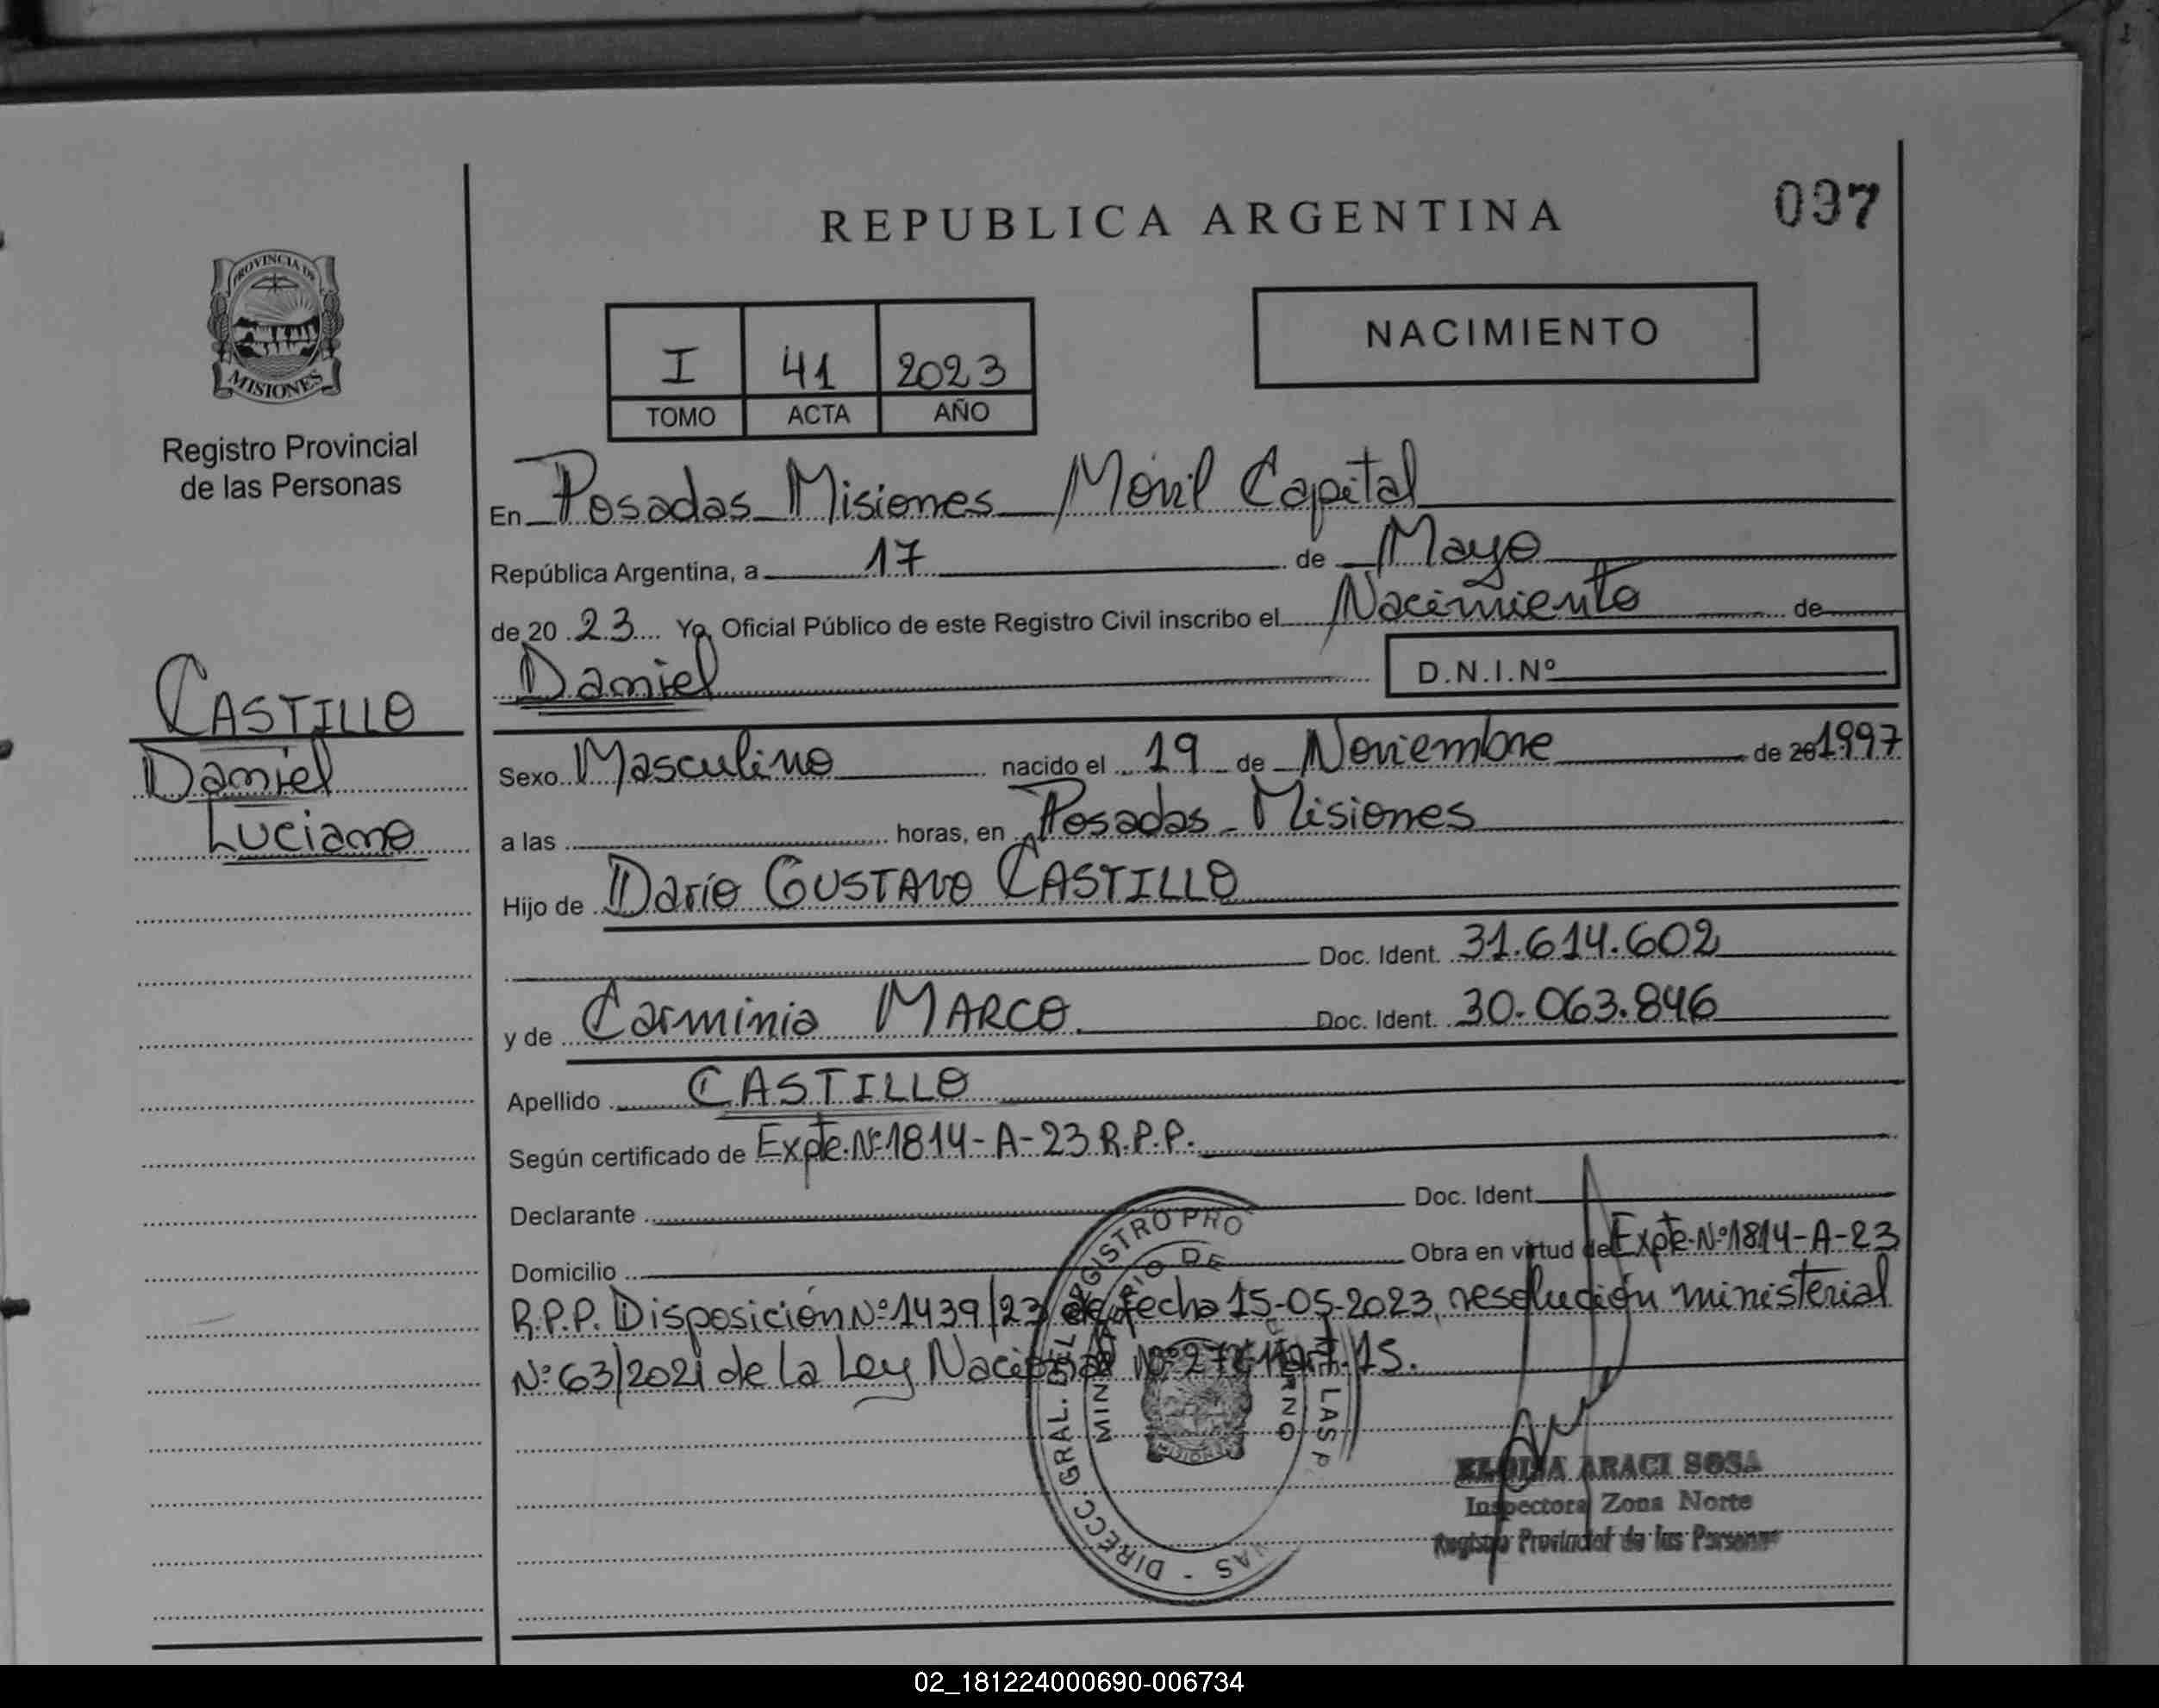 REPUBLICA ARGENTINA
037
PROVINCIA DE
MISIONES
Registro Provincial
de las Personas
NACIMIENTO
I 41 2023
TOMO ACTA AÑO
En Posadas Misiones Móvil Capital
República Argentina, a 17 de Mayo
de 20 23 Yo, Oficial Público de este Registro Civil inscribo el Nacimiento de
Daniel
D.N.I.Nº
CASTILLO
Daniel
Luciano
Sexo Masculino nacido el 19 de Noviembre de 20 1997
a las horas, en Posadas - Misiones
Hijo de Darío GUSTAVO CASTILLO
Doc. Ident. 31.614.602
y de Carminia MARCO. Doc. Ident. 30.063.846
Apellido CASTILLO
Según certificado de Expte. Nº 1814-A-23 R.P.P.
Declarante Doc. Ident.
Domicilio Obra en virtud de Expte. Nº 1814-A-23
R.P.P. Disposición Nº 1439/23 de fecha 15-05-2023, resolución ministerial
Nº 63/2021 de la Ley Nacional Art. 15.
DIRECC. GRAL. DEL REGISTRO PRO
LAS P
NAS -
DE
MIN
ELOISA ARACI SOSA
Inspectora Zona Norte
Registro Provincial de las Personas
02_181224000690-006734